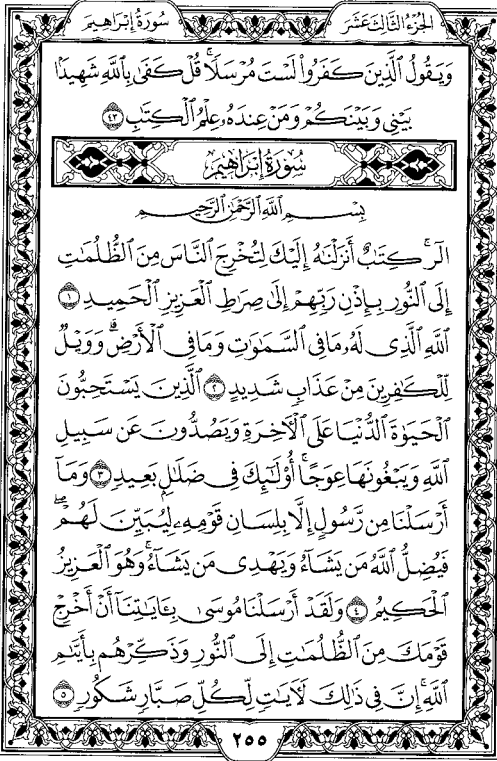 سُورَةُ إِبْرَاهِيم
الجُزْءُ الثَّالِثَ عَشَرَ
وَيَقُولُ ٱلَّذِينَ كَفَرُوا۟ لَسْتَ مُرْسَلًا ۚ قُلْ كَفَىٰ بِٱللَّهِ شَهِيدًۢا
بَيْنِى وَبَيْنَكُمْ وَمَنْ عِندَهُۥ عِلْمُ ٱلْكِتَٰبِ ٤٣
سُورَةُ إِبْرَاهِيمَ
بِسْمِ ٱللَّهِ ٱلرَّحْمَٰنِ ٱلرَّحِيمِ
الٓر ۚ كِتَٰبٌ أَنزَلْنَٰهُ إِلَيْكَ لِتُخْرِجَ ٱلنَّاسَ مِنَ ٱلظُّلُمَٰتِ
إِلَى ٱلنُّورِ بِإِذْنِ رَبِّهِمْ إِلَىٰ صِرَٰطِ ٱلْعَزِيزِ ٱلْحَمِيدِ ١
ٱللَّهِ ٱلَّذِى لَهُۥ مَا فِى ٱلسَّمَٰوَٰتِ وَمَا فِى ٱلْأَرْضِ ۗ وَوَيْلٌ
لِّلْكَٰفِرِينَ مِنْ عَذَابٍ شَدِيدٍ ٢ ٱلَّذِينَ يَسْتَحِبُّونَ
ٱلْحَيَوٰةَ ٱلدُّنْيَا عَلَى ٱلْءَاخِرَةِ وَيَصُدُّونَ عَن سَبِيلِ
ٱللَّهِ وَيَبْغُونَهَا عِوَجًا ۚ أُو۟لَٰٓئِكَ فِى ضَلَٰلٍۭ بَعِيدٍ ٣ وَمَآ
أَرْسَلْنَا مِن رَّسُولٍ إِلَّا بِلِسَانِ قَوْمِهِۦ لِيُبَيِّنَ لَهُمْ ۖ
فَيُضِلُّ ٱللَّهُ مَن يَشَآءُ وَيَهْدِى مَن يَشَآءُ ۚ وَهُوَ ٱلْعَزِيزُ
ٱلْحَكِيمُ ٤ وَلَقَدْ أَرْسَلْنَا مُوسَىٰ بِـَٔايَٰتِنَآ أَنْ أَخْرِجْ
قَوْمَكَ مِنَ ٱلظُّلُمَٰتِ إِلَى ٱلنُّورِ وَذَكِّرْهُم بِأَيَّىٰمِ
ٱللَّهِ ۚ إِنَّ فِى ذَٰلِكَ لَءَايَٰتٍ لِّكُلِّ صَبَّارٍ شَكُورٍ ٥
٢٥٥